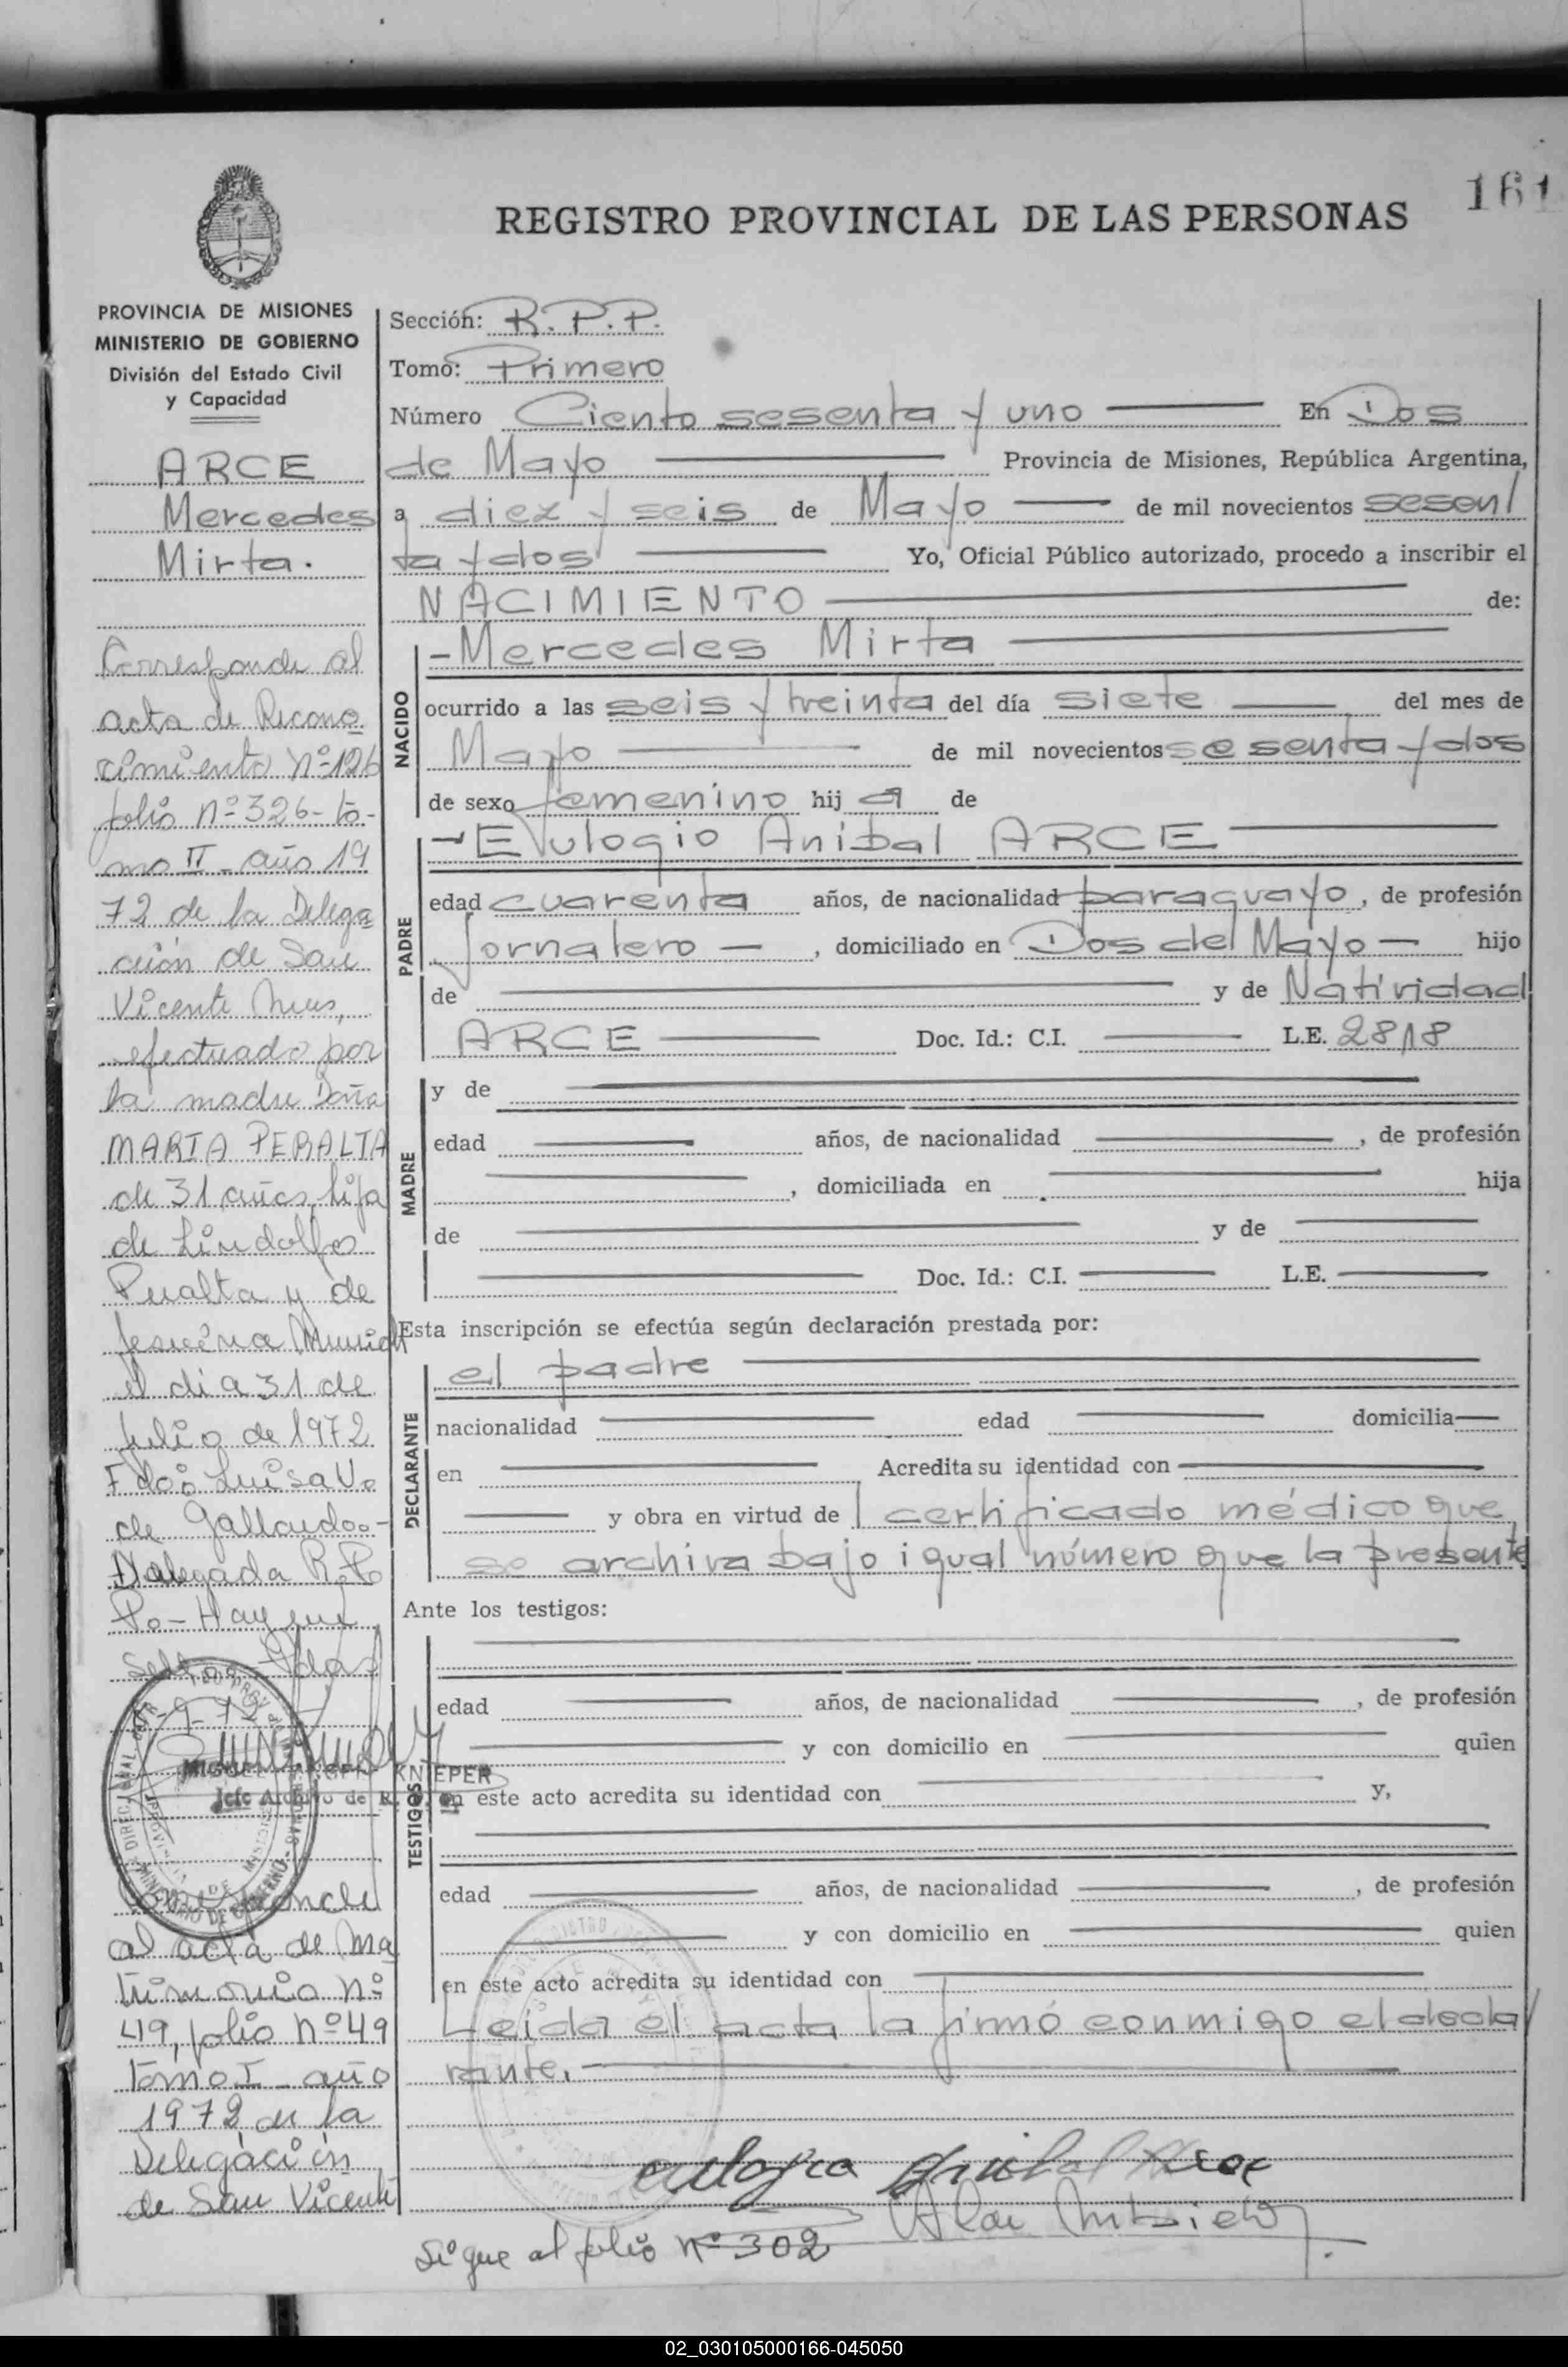 161
REGISTRO PROVINCIAL DE LAS PERSONAS
PROVINCIA DE MISIONES
MINISTERIO DE GOBIERNO
División del Estado Civil
y Capacidad
ARCE
Mercedes
Mirta.
Corresponde al
acta de Recono
cimiento Nº 126
folio nº 326 - to-
mo II - año 19
72 de la Delega
ción de San
Vicente Mnes,
efectuado por
la madre Doña
MARTA PERALTA
de 31 años, hija
de Lindolfos
Peralta y de
el dia 31 de
julio de 1972
Fdo: Luisa V.
de Gallardo.-
Delegada R.P.
Po - Hay un
Sello
MIGUEL ANGEL KNIEPER
Jefe Archivo de R.
Corresponde
al acta de Ma
trimonio nº
49, folio nº 49
tomo I - año
1972 de la
Delegación
de San Vicente
Sección: R.P.P.
Tomo: Primero
Número Ciento sesenta y uno En Dos
de Mayo Provincia de Misiones, República Argentina,
a diez y seis de Mayo de mil novecientos sesen
ta y dos Yo, Oficial Público autorizado, procedo a inscribir el
NACIMIENTO de:
NACIDO
- Mercedes Mirta
ocurrido a las seis y treinta del día siete del mes de
Mayo de mil novecientos sesenta y dos
de sexo femenino hij a de
PADRE
- Eulogio Anibal ARCE
edad cuarenta años, de nacionalidad paraguayo, de profesión
Jornalero, domiciliado en Dos del Mayo hijo
de y de Natividad
ARCE Doc. Id.: C.I. L.E. 2818
MADRE
y de
edad años, de nacionalidad , de profesión
, domiciliada en hija
de y de
Doc. Id.: C.I. L.E.
Esta inscripción se efectúa según declaración prestada por:
DECLARANTE
el padre
nacionalidad edad domicilia
en Acredita su identidad con
y obra en virtud de certificado médico que
se archiva bajo igual número que la presente
Ante los testigos:
TESTIGOS
edad años, de nacionalidad , de profesión
y con domicilio en quien
en este acto acredita su identidad con y,
edad años, de nacionalidad , de profesión
y con domicilio en quien
en este acto acredita su identidad con
Leida el acta la firmó conmigo el decla
rante.
eulogio Anibal Arce
Sigue al folio Nº 302
02_030105000166-045050